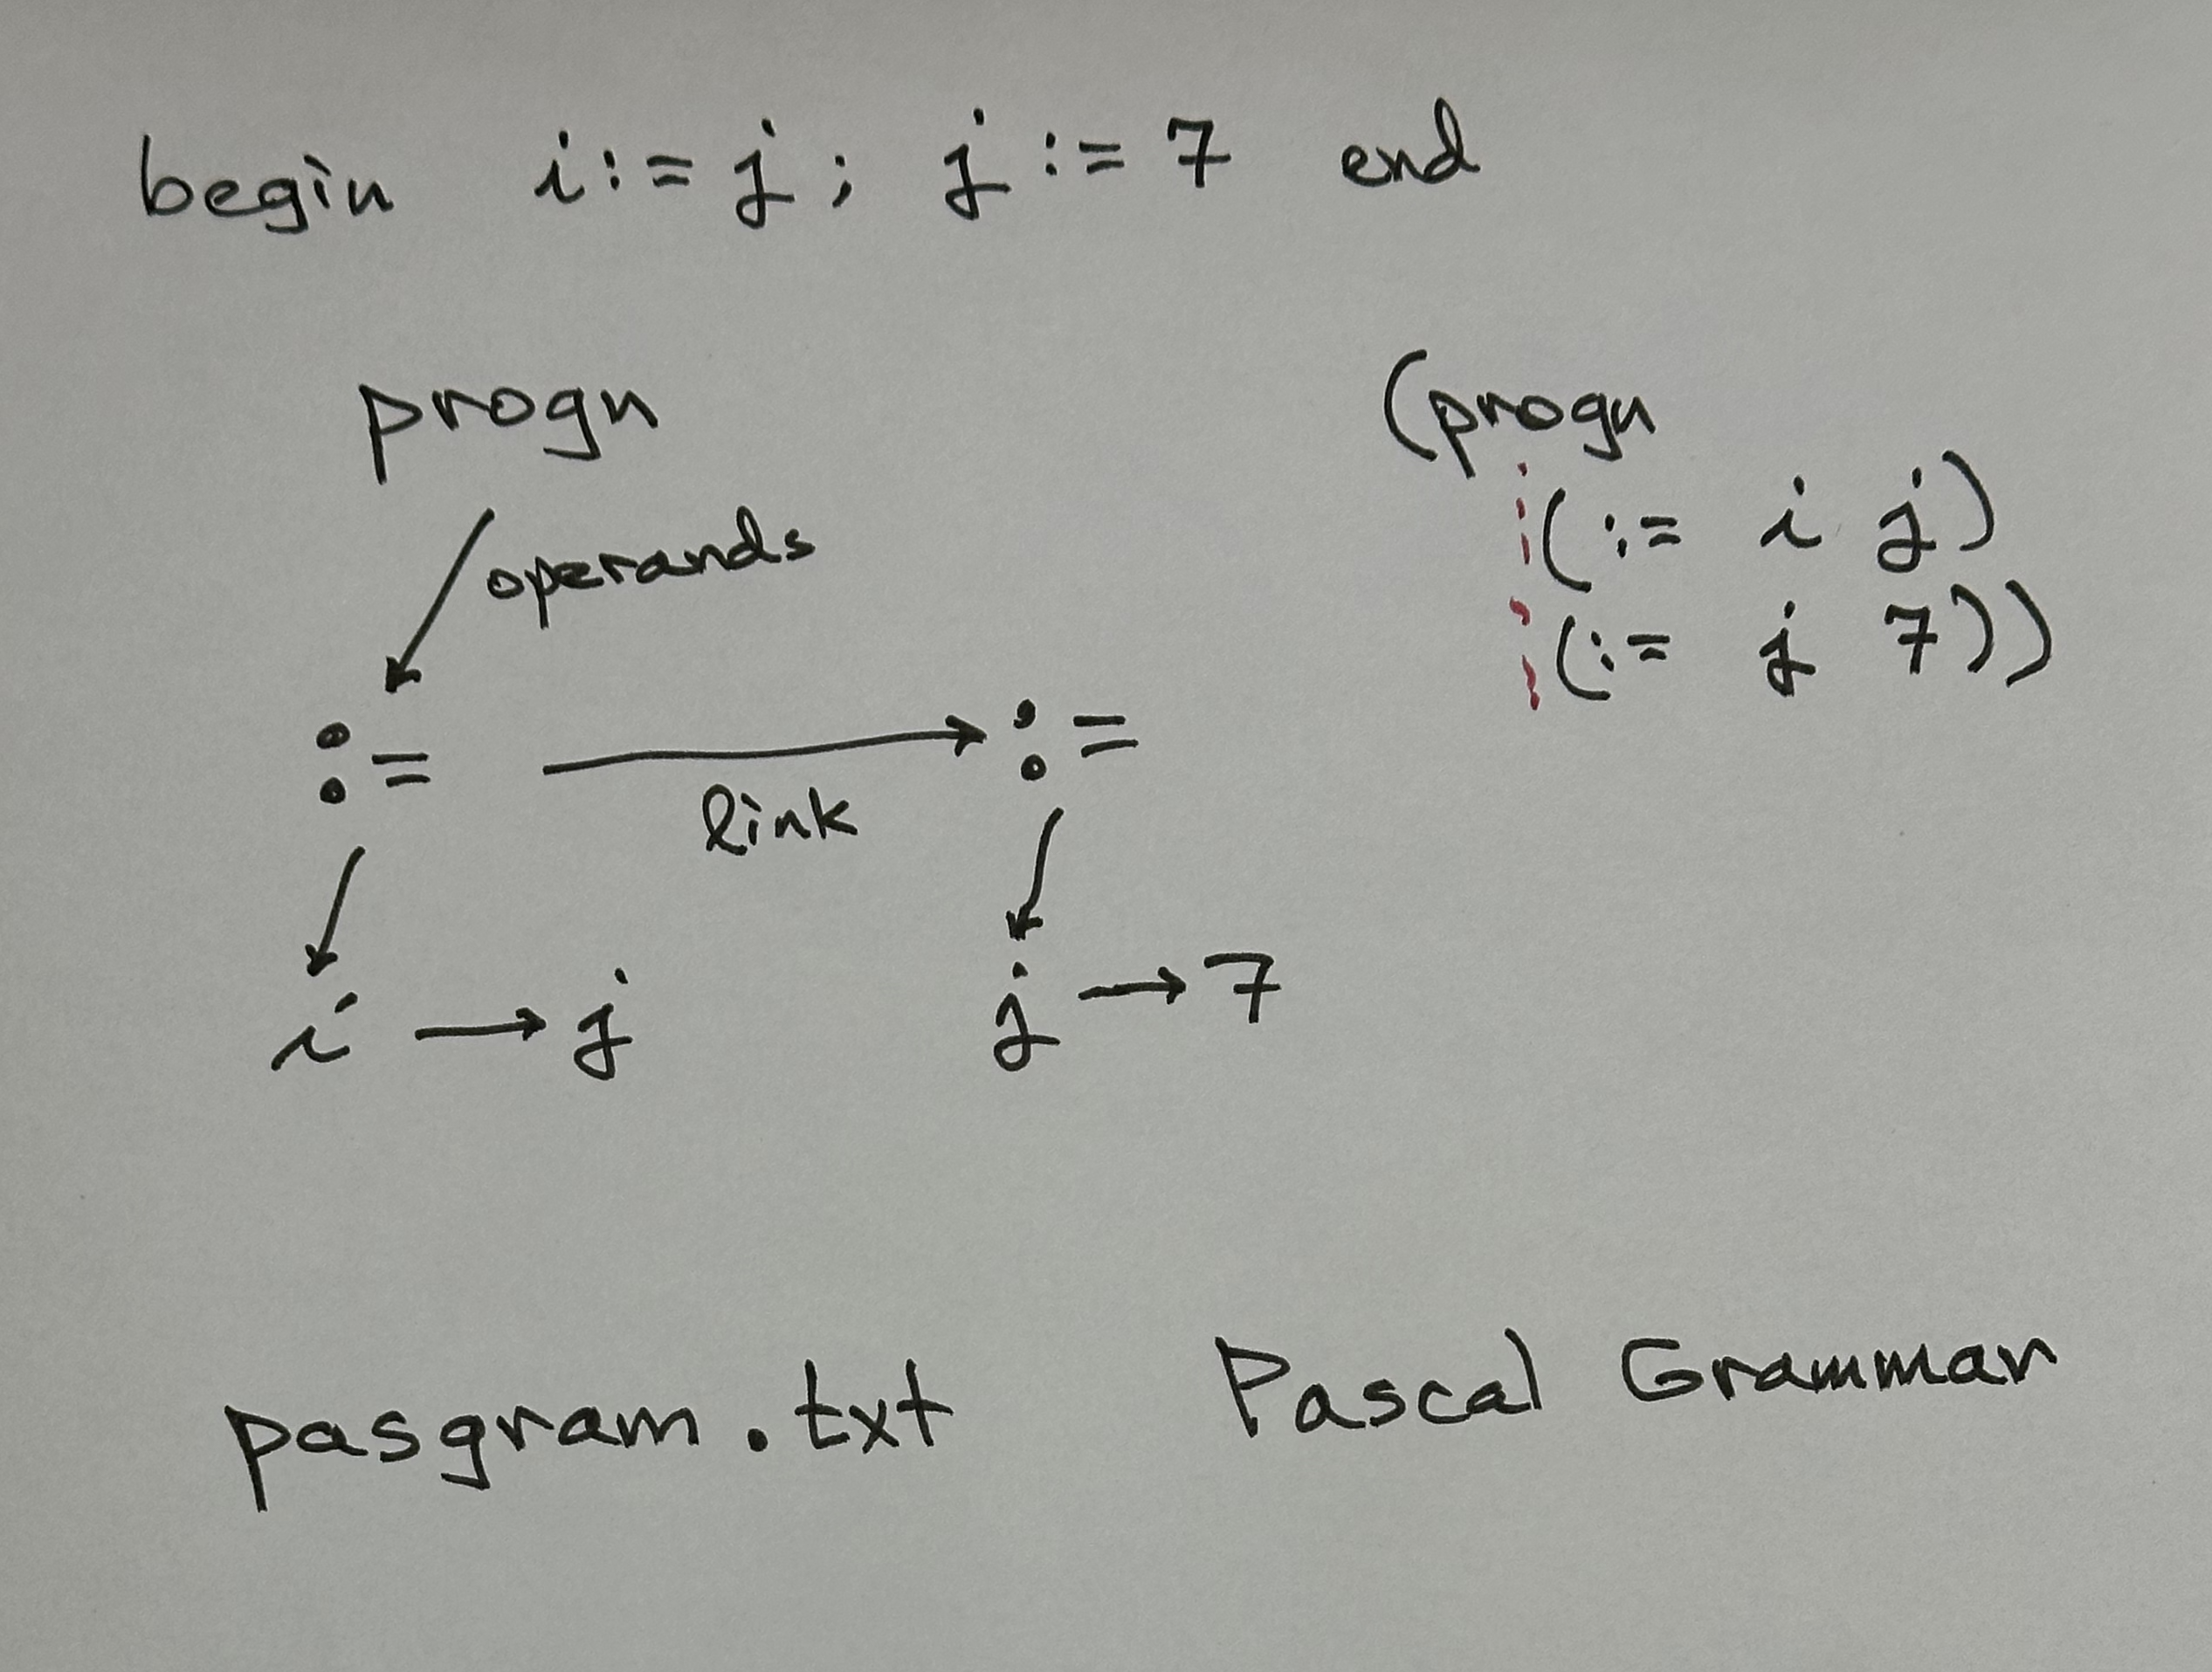 begin i := j ; j := 7 end
progn
operands
:= → :=
link
i → j
j → 7
(progn
(:= i j)
(:= j 7))
pasgram.txt
Pascal Grammar